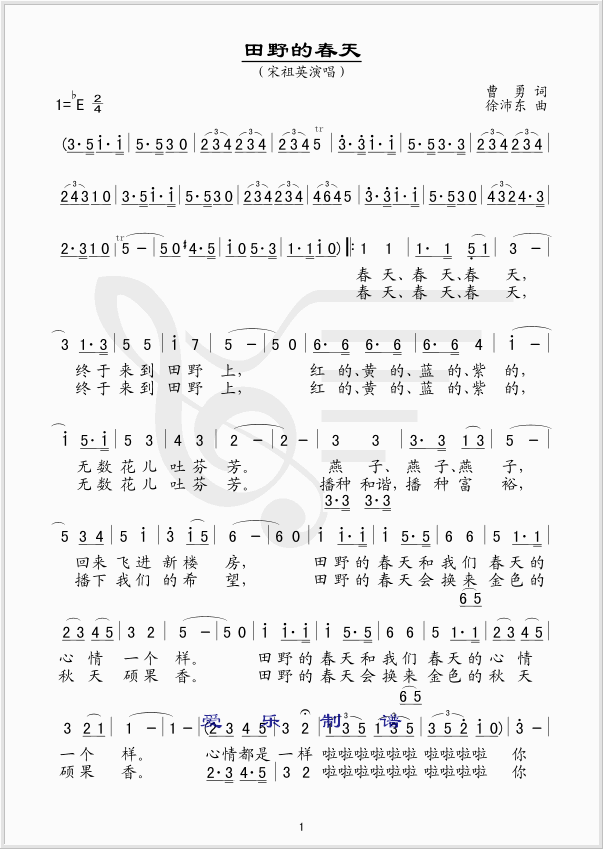 田野的春天
(宋祖英演唱)
曹 勇 词
1=♭E 2/4
徐沛东 曲
(3·5i·i | 5·530 | 234234 | 2345 tr | 3·3i·i | 5·53·3 | 234234 |
24310 | 3·5i·i | 5·530 | 234234 | 4645 | 3·3i·i | 5·530 | 4324·3 |
2·310 | tr 5 － | 50#4·5 | i05·3 | 1·1i0) ‖: 1 1 | 1· 1 51 | 3 － |
春 天、春 天、春 天,
春 天、春 天、春 天,
3 1·3 | 5 5 | i 7 | 5 － | 5 0 | 6· 6 6 | 6· 6 4 | i － |
终于 来到 田野 上, 红 的、黄 的、蓝 的、紫 的,
终于 来到 田野 上, 红 的、黄 的、蓝 的、紫 的,
i 5·i | 5 3 | 4 3 | 2 － | 2 － | 3 3 | 3·3 13 | 5 － |
无数 花儿 吐芬 芳。 燕 子、燕 子、燕 子,
无数 花儿 吐芬 芳。 播种 和谐, 播 种 富 裕,
3·3 3·3
5 34 | 5 i | 3 i | 5 － | 6 0 | i i·i | i 5·5 | 6 6 | 5 1·1 |
回来 飞进 新楼 房, 田野的 春天和 我们 春天的
播下 我们 的希 望, 田野的 春天会 换来 金色的
6 5
23 45 | 3 2 | 5 － | 5 0 | i i·i | i 5·5 | 6 6 | 5 1·1 | 23 45 |
心 情 一个 样。 田野的 春天和 我们 春天的 心 情
秋 天 硕果 香。 田野的 春天会 换来 金色的 秋 天
6 5
爱 乐 制 谱
3 21 | 1 － | 1 － | (23 45 | 3 2 | 135 135 | 135 135 | 352·10) | 3 － |
一个 样。 心情都是 一样 啦啦啦啦啦 啦啦啦啦 你
硕果 香。 2·3 4·5 | 3 2 啦啦啦啦啦 啦啦啦啦 你
1